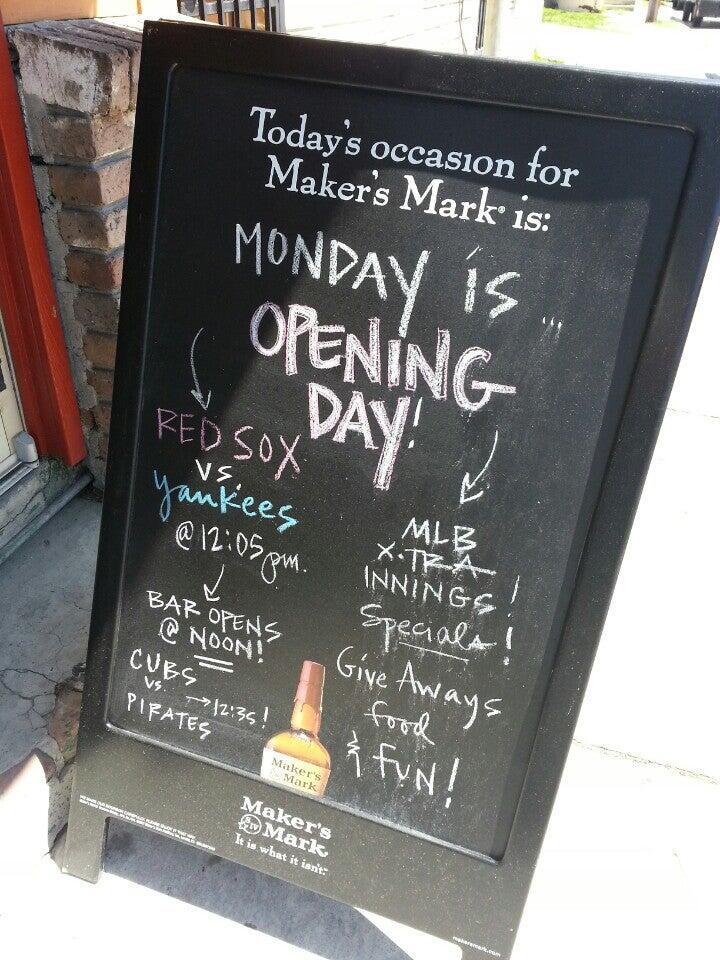 Today's occasion for
Maker's Mark® is:
MONDAY is ...
OPENING
DAY!
RED SOX
vs.
yankees
@ 12:05 pm.
BAR OPENS
@ NOON!
CUBS
vs.
→12:35!
PIRATES
MLB
X-TRA
INNINGS!
Specials!
Give Aways
food
& FUN!
Maker's
Mark
Maker's
Mark
It is what it isn't.
makersmark.com